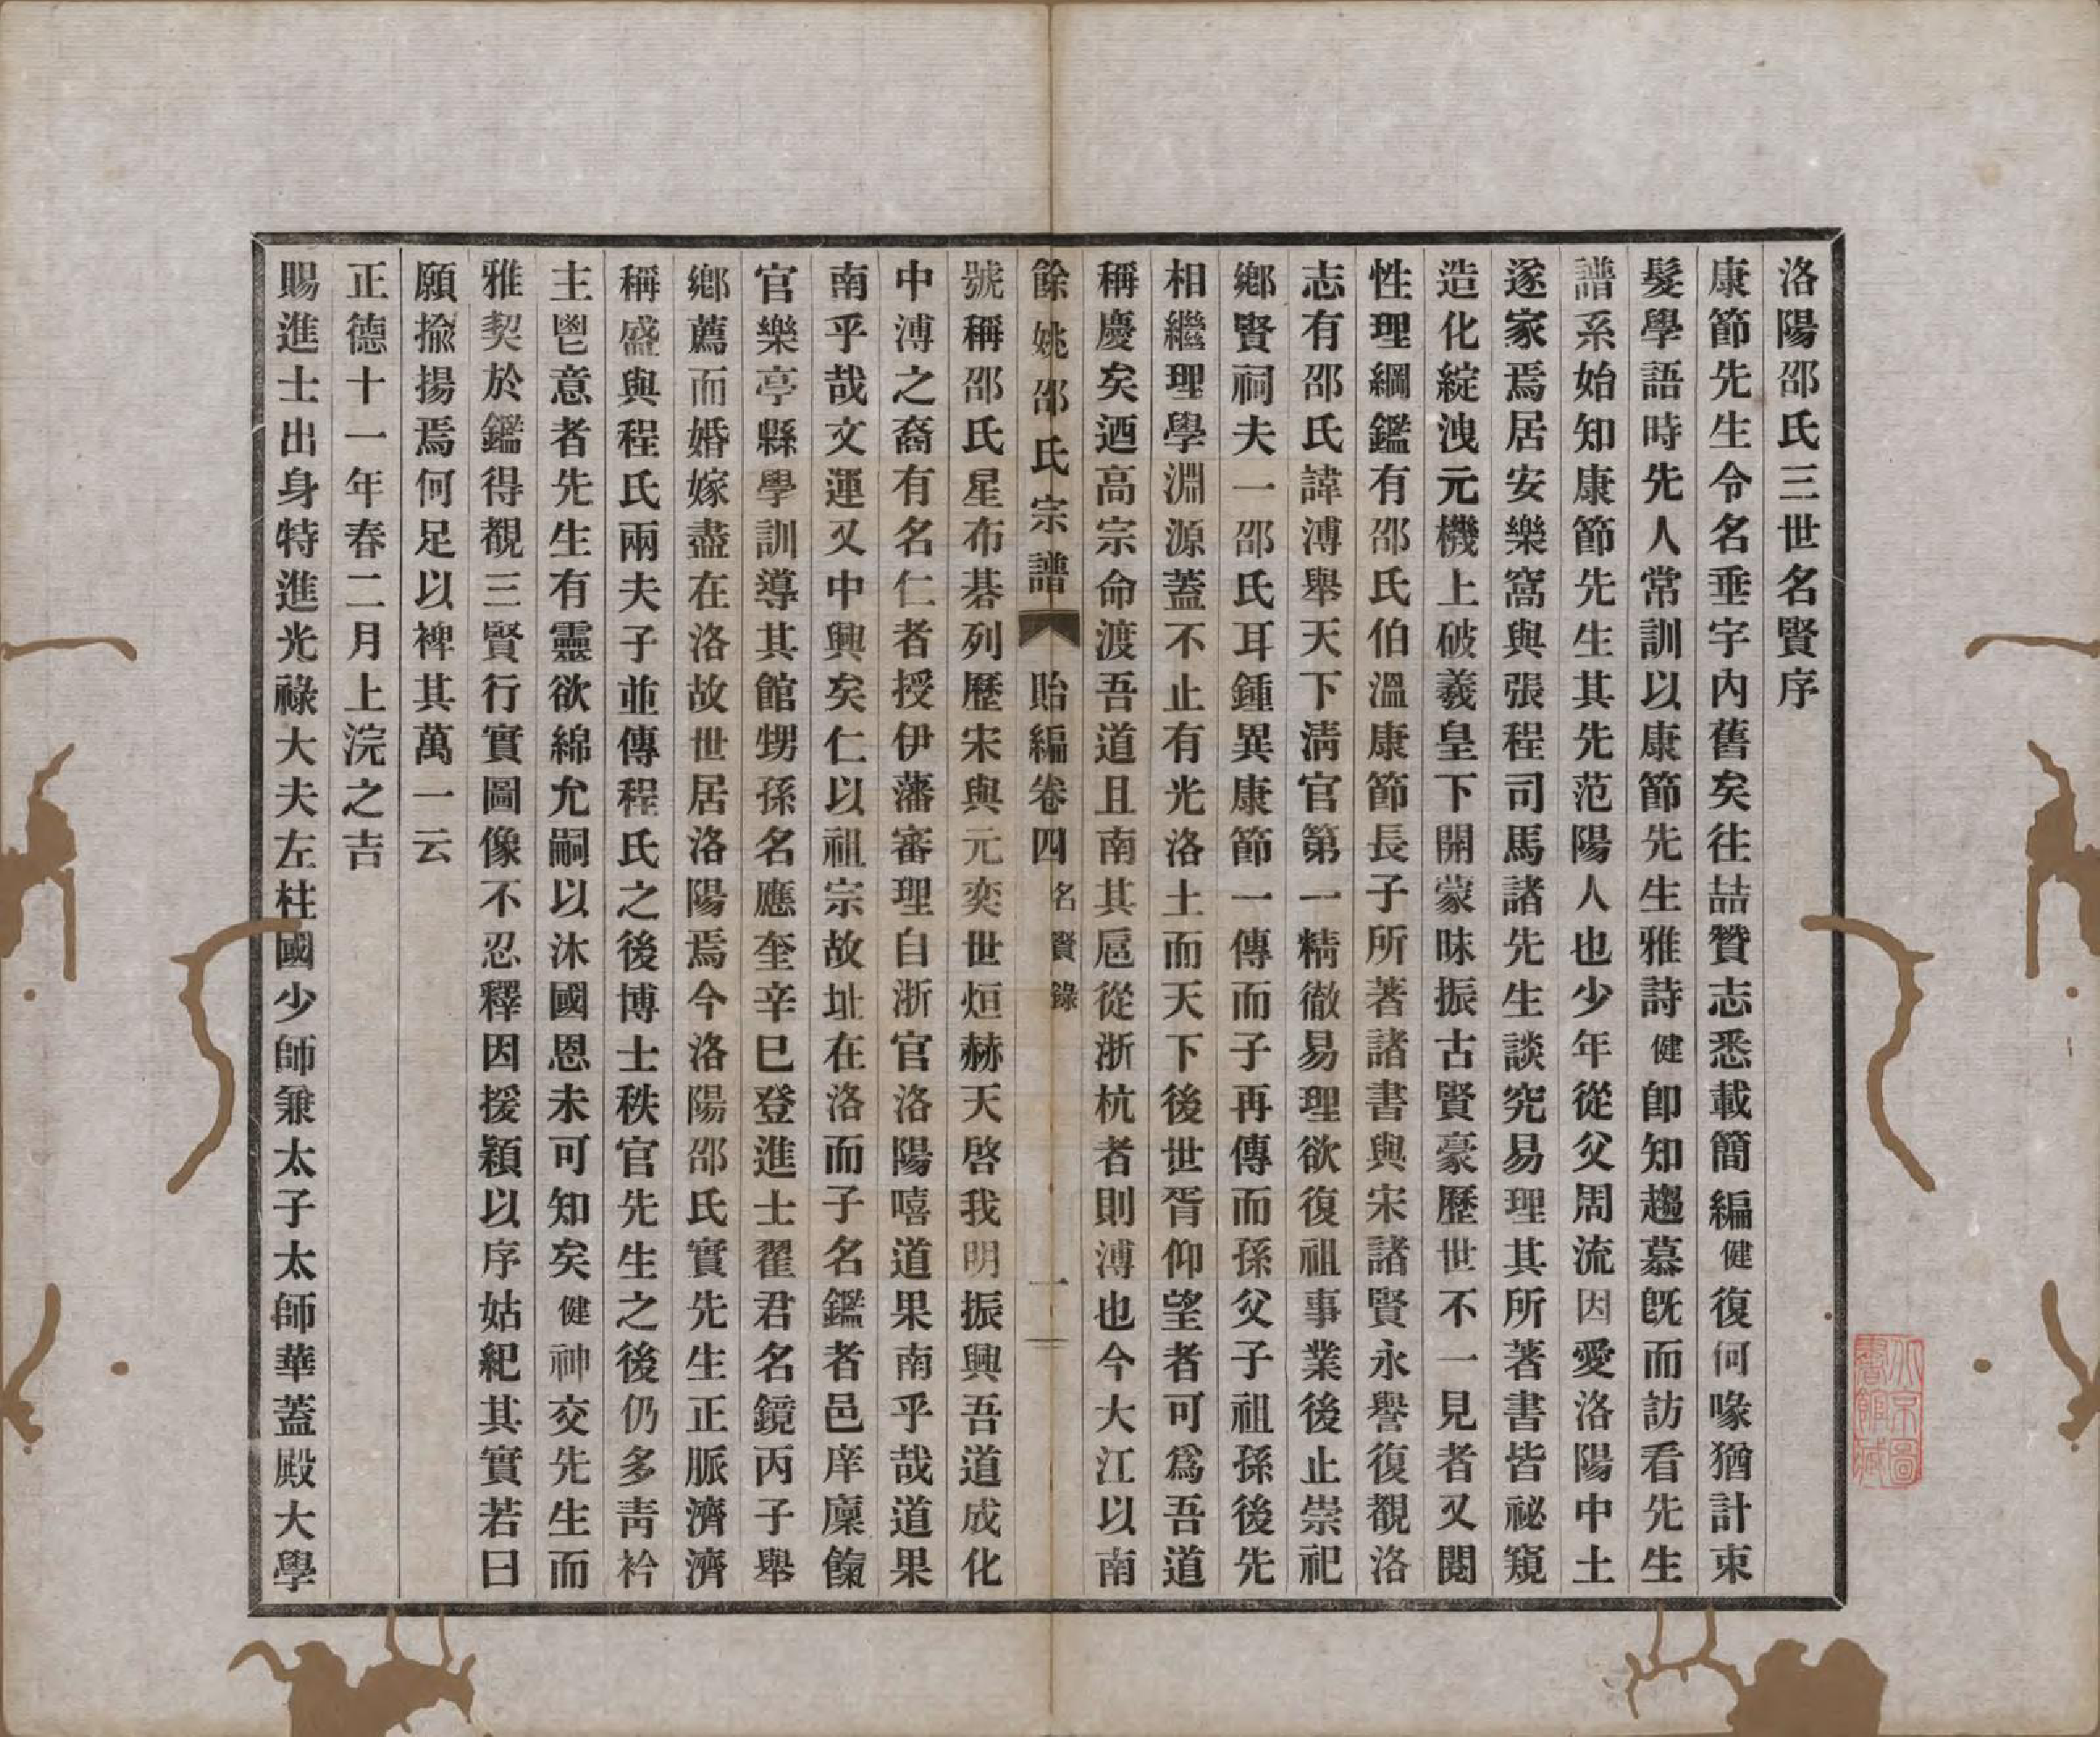 洛陽邵氏三世名賢序
康節先生令名垂宇內舊矣往喆贊志悉載簡編健復何喙猶計束
髮學語時先人常訓以康節先生雅詩健卽知趨慕旣而訪看先生
譜系始知康節先生其先范陽人也少年從父周流因愛洛陽中土
遂家焉居安樂窩與張程司馬諸先生談究易理其所著書皆祕窺
造化綻洩元機上破羲皇下開蒙昧振古賢豪歷世不一見者又閱
性理綱鑑有邵氏伯溫康節長子所著諸書與宋諸賢永譽復觀洛
志有邵氏諱溥舉天下淸官第一精徹易理欲復祖事業後止崇祀
鄉賢祠夫一邵氏耳鍾異康節一傳而子再傳而孫父子祖孫後先
相繼理學淵源蓋不止有光洛土而天下後世胥仰望者可爲吾道
稱慶矣迺高宗命渡吾道且南其扈從浙杭者則溥也今大江以南
餘姚邵氏宗譜 貽編卷四 名賢錄 一
號稱邵氏星布碁列歷宋與元奕世烜赫天啓我明振興吾道成化
中溥之裔有名仁者授伊藩審理自浙官洛陽嘻道果南乎哉道果
南乎哉文運又中興矣仁以祖宗故址在洛而子名鑑者邑庠廩餼
官樂亭縣學訓導其館甥孫名應奎辛巳登進士翟君名鏡丙子舉
鄉薦而婚嫁盡在洛故世居洛陽焉今洛陽邵氏實先生正脈濟濟
稱盛與程氏兩夫子並傳程氏之後博士秩官先生之後仍多靑衿
主鬯意者先生有靈欲綿允嗣以沐國恩未可知矣健神交先生而
雅契於鑑得覩三賢行實圖像不忍釋因援穎以序姑紀其實若曰
願揄揚焉何足以裨其萬一云
正德十一年春二月上浣之吉
賜進士出身特進光祿大夫左柱國少師兼太子太師華蓋殿大學
北京圖
書館藏